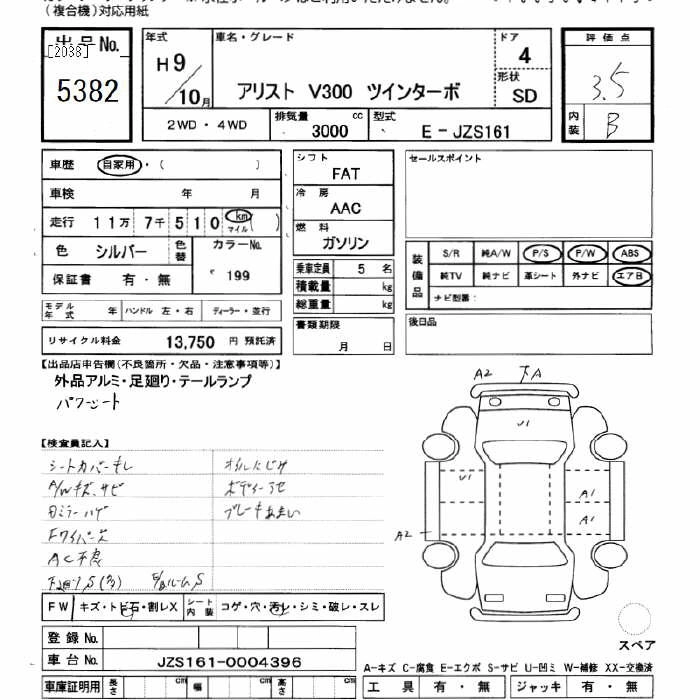 (複合機)対応用紙
出品No.
[2038]
5382
年式
H9/10月
車名・グレード
アリスト V300 ツインターボ
ドア
4
形状
SD
評価点
3.5
内装
B
2WD・4WD
排気量
3000 cc
型式
E-JZS161
車歴 自家用・( )
車検 年 月
走行 11万 7千 510 km マイル ( )
色 シルバー 色替 カラーNo. 199
保証書 有・無
モデル年式 年 ハンドル 左・右 ディーラー・並行
リサイクル料金 13,750 円 預託済
シフト
FAT
冷房
AAC
燃料
ガソリン
乗車定員 5 名
積載量 kg
総重量 kg
書類期限
月 日
セールスポイント
装備品
S/R 純A/W P/S P/W ABS
純TV 純ナビ 革シート 外ナビ エアB
ナビ型番:
後日品
【出品店申告欄(不良箇所・欠品・注意事項等)】
外品アルミ・足廻り・テールランプ
パワーシート
【検査員記入】
シートカバーキレ
A/Wキズ、サビ
オイルにじみ
ボディーアセ
ブレーキあまい
AC不良
FW キズ・トビ石・割レX シート内装 コゲ・穴・汚レ・シミ・破レ・スレ
登録No.
車台No. JZS161-0004396
車庫証明用 長さ cm 幅 cm 高さ cm
A2
下A
U1
U1
A1
A1
A2
スペア
A-キズ C-腐食 E-エクボ S-サビ U-凹ミ W-補修 XX-交換済
工具 有・無 ジャッキ 有・無